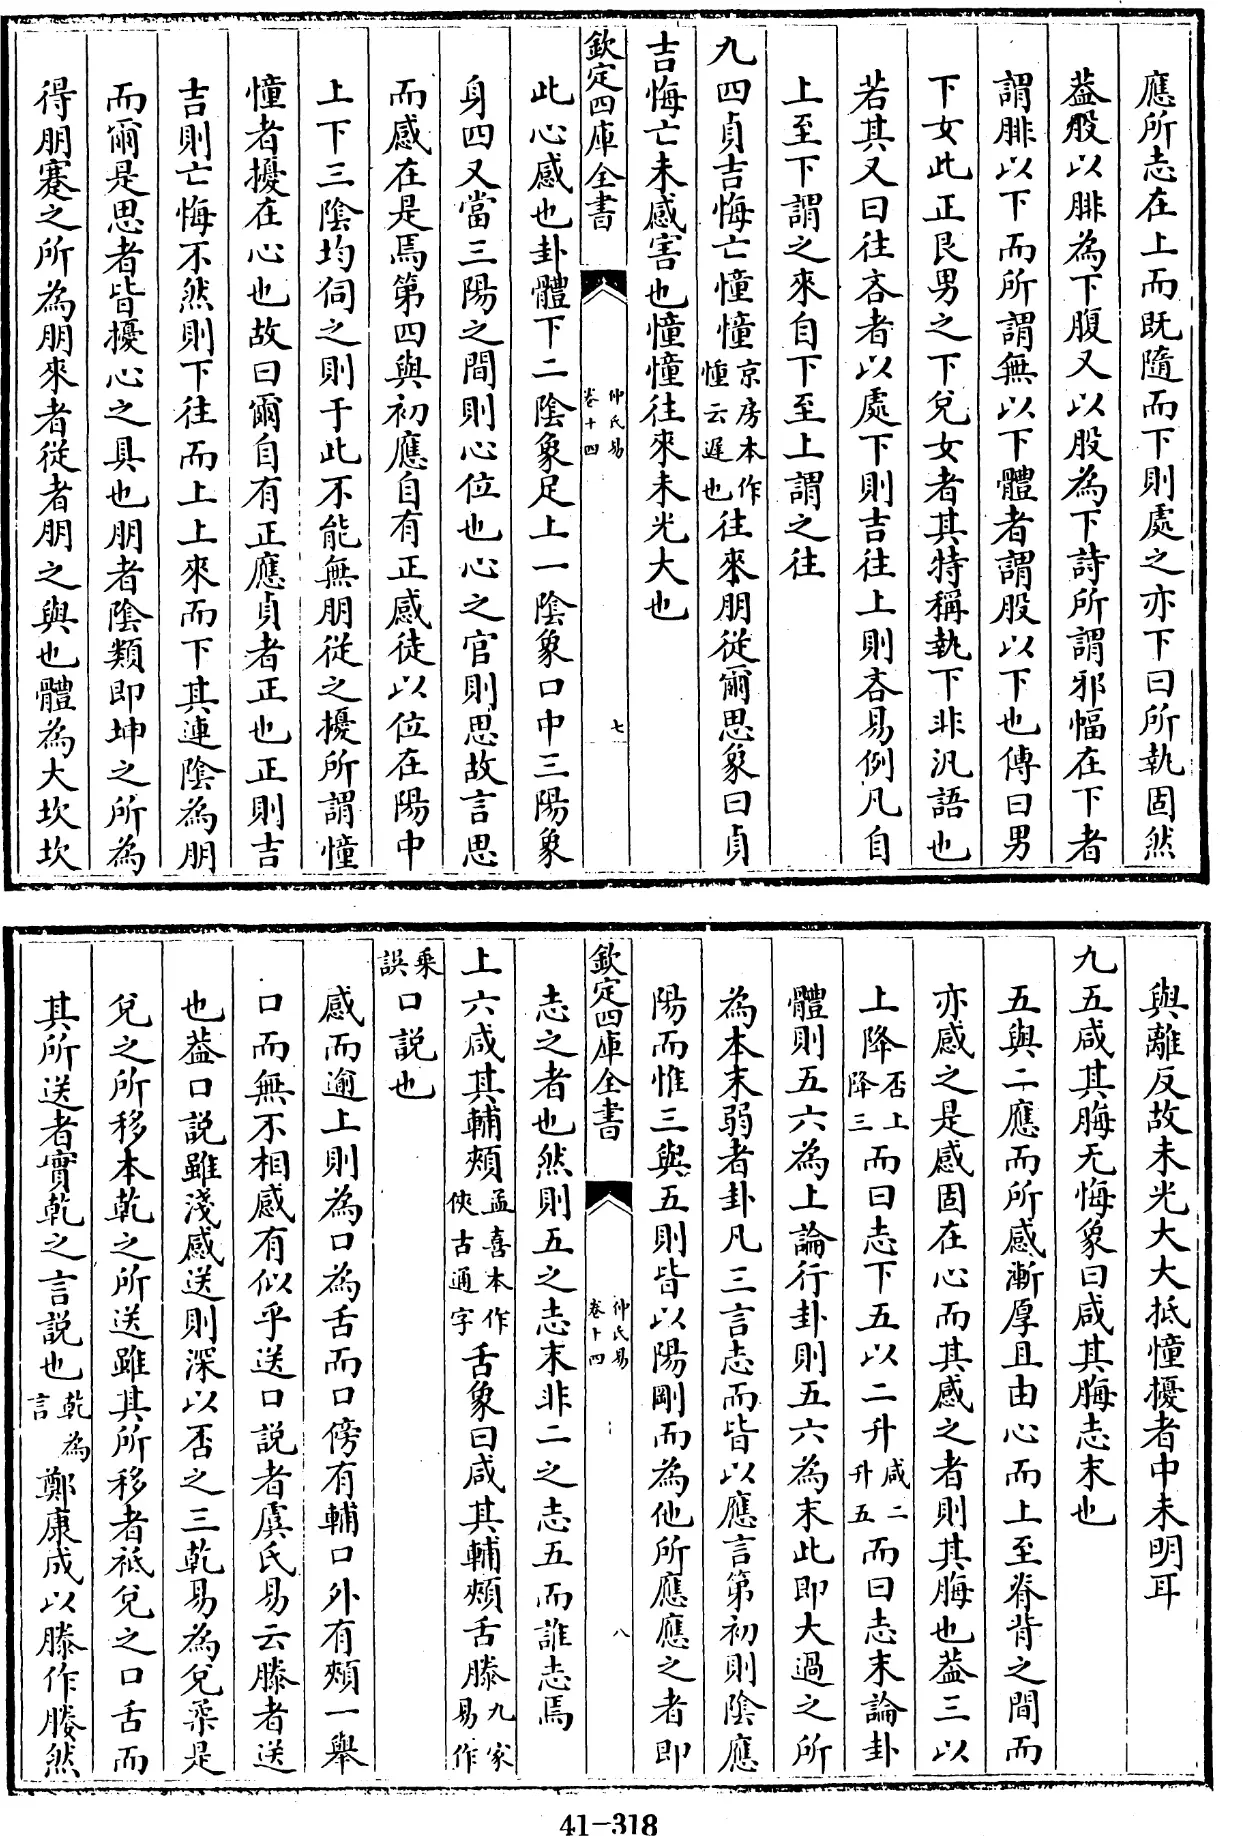 應所志在上而既隨而下則處之亦下曰所執固然
葢股以腓為下腹又以股為下詩所謂邪幅在下者
謂腓以下而所謂無以下體者謂股以下也傳曰男
下女此正艮男之下兌女者其特稱執下非汎語也
若其又曰往吝者以處下則吉往上則吝易例凡自
上至下謂之來自下至上謂之往
九四貞吉悔亡憧憧京房本作憧云遲也往來朋從爾思象曰貞
吉悔亡未感害也憧憧往來未光大也
欽定四庫全書
仲氏易
卷十四
七
此心感也卦體下二陰象足上一陰象口中三陽象
身四又當三陽之間則心位也心之官則思故言思
而感在是焉第四與初應自有正感徒以位在陽中
上下三陰均伺之則于此不能無朋從之擾所謂憧
憧者擾在心也故曰爾自有正應貞者正也正則吉
吉則亡悔不然則下往而上上來而下其連陰為朋
而爾是思者皆擾心之具也朋者陰類即坤之所為
得朋蹇之所為朋來者從者朋之與也體為大坎坎
與離反故未光大大抵憧擾者中未明耳
九五咸其脢无悔象曰咸其脢志末也
五與二應而所感漸厚且由心而上至脊背之間而
亦感之是感固在心而其感之者則其脢也葢三以
上降否上降三而曰志下五以二升咸二升五而曰志末論卦
體則五六為上論行卦則五六為末此即大過之所
為本末弱者卦凡三言志而皆以應言第初則陰應
陽而惟三與五則皆以陽剛而為他所應應之者即
欽定四庫全書
仲氏易
卷十四
八
志之者也然則五之志末非二之志五而誰志焉
上六咸其輔頰孟喜本作俠古通字舌象曰咸其輔頰舌滕九家易作
乘誤口説也
感而逾上則為口為舌而口傍有輔口外有頰一舉
口而無不相感有似乎送口説者虞氏易云滕者送
也葢口説雖淺感送則深以否之三乾易為兌柔是
兌之所移本乾之所送雖其所移者祗兌之口舌而
其所送者實乾之言説也乾為言鄭康成以滕作媵然
41-318